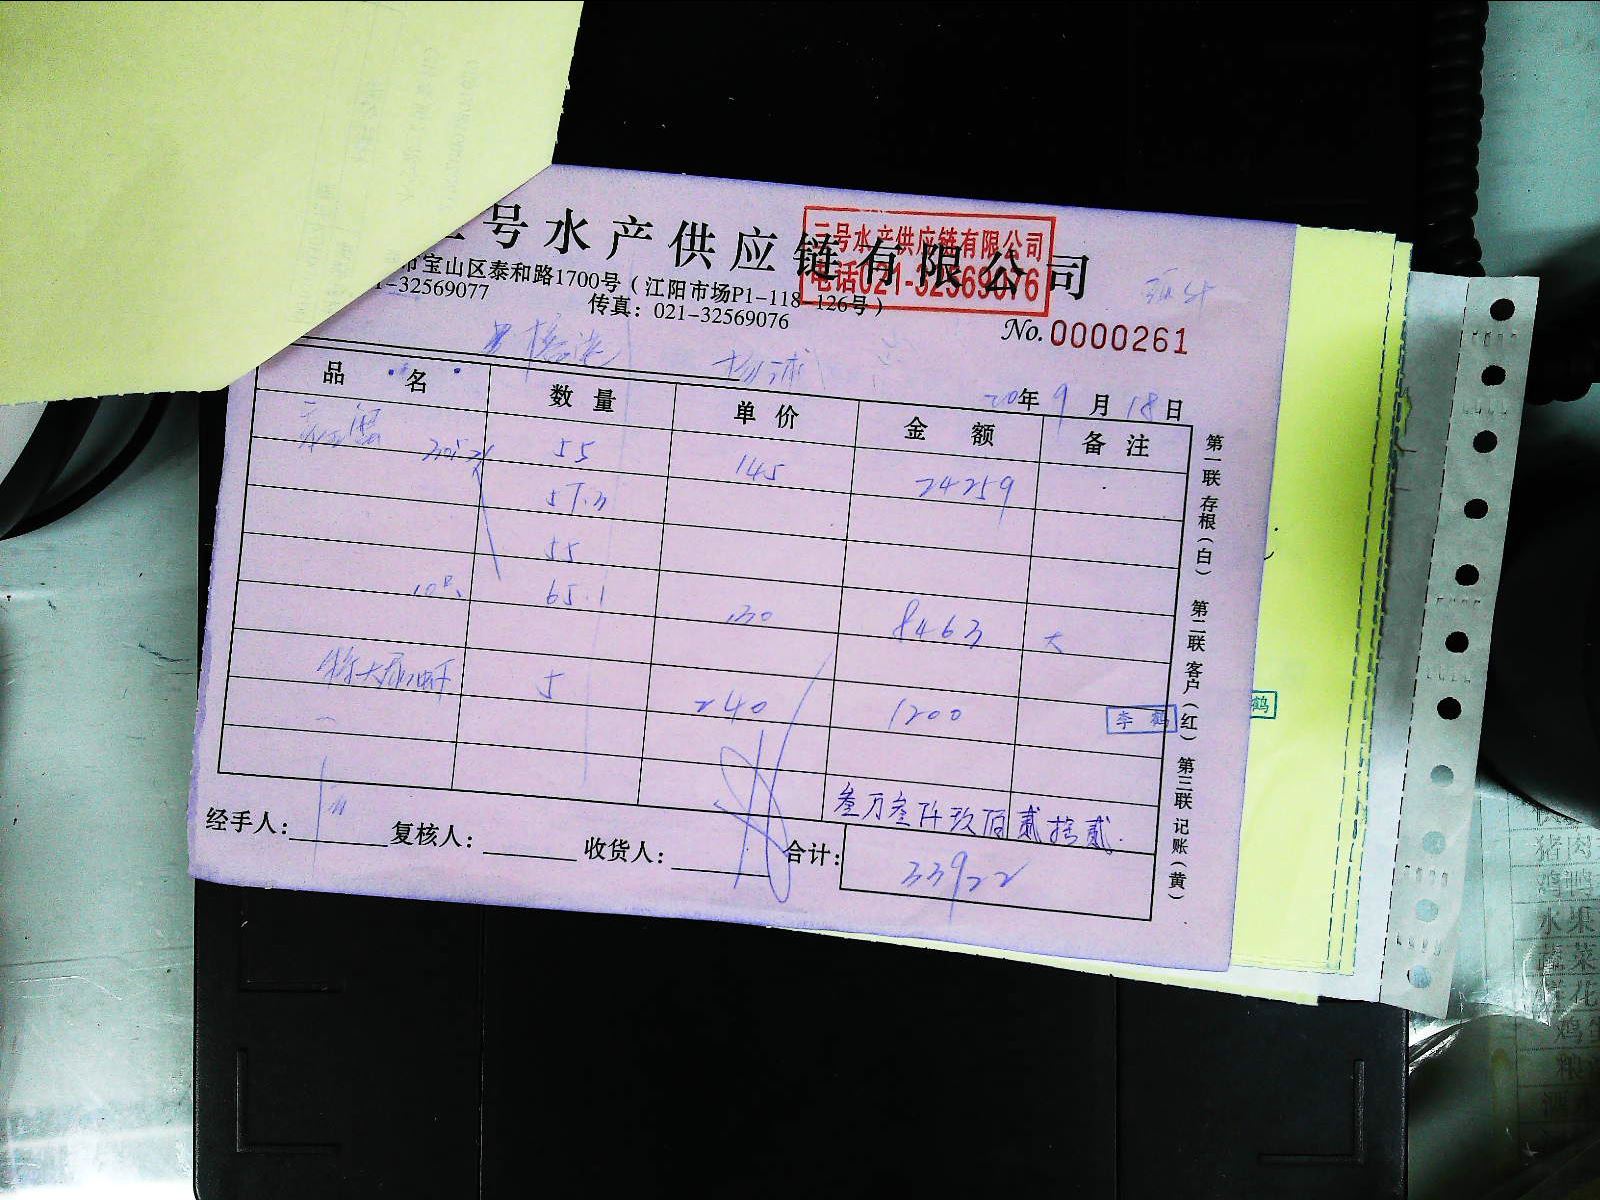 三号水产供应链有限公司
三号水产供应链有限公司
电话021-32569076
市宝山区泰和路1700号（江阳市场P1-118-126号）
1-32569077 传真：021-32569076
No.0000261
20年9月18日
品名 数量 单价 金额 备注
55 145 24259
57.3
55
10只 65.1 130 8463 大
5 240 1200
李鹤
鹤
叁万叁仟玖佰贰拾贰
经手人： 复核人： 收货人： 合计： 33922
第一联存根（白） 第二联客户（红） 第三联记账（黄）
猪肉
鸡鸭
水果
蔬菜
鲜花